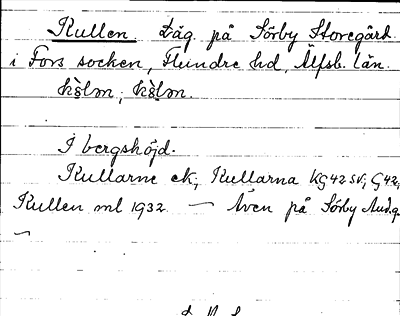 Kullen. Läg. på Sörby Storegård.
i Fors socken, Flundre hd, Älfsb. län.
I bergshöjd.
Kullarne ek; Kullarna KG42SV; G42,
Kullen ml 1932. — Även på Sörby Aud.g.